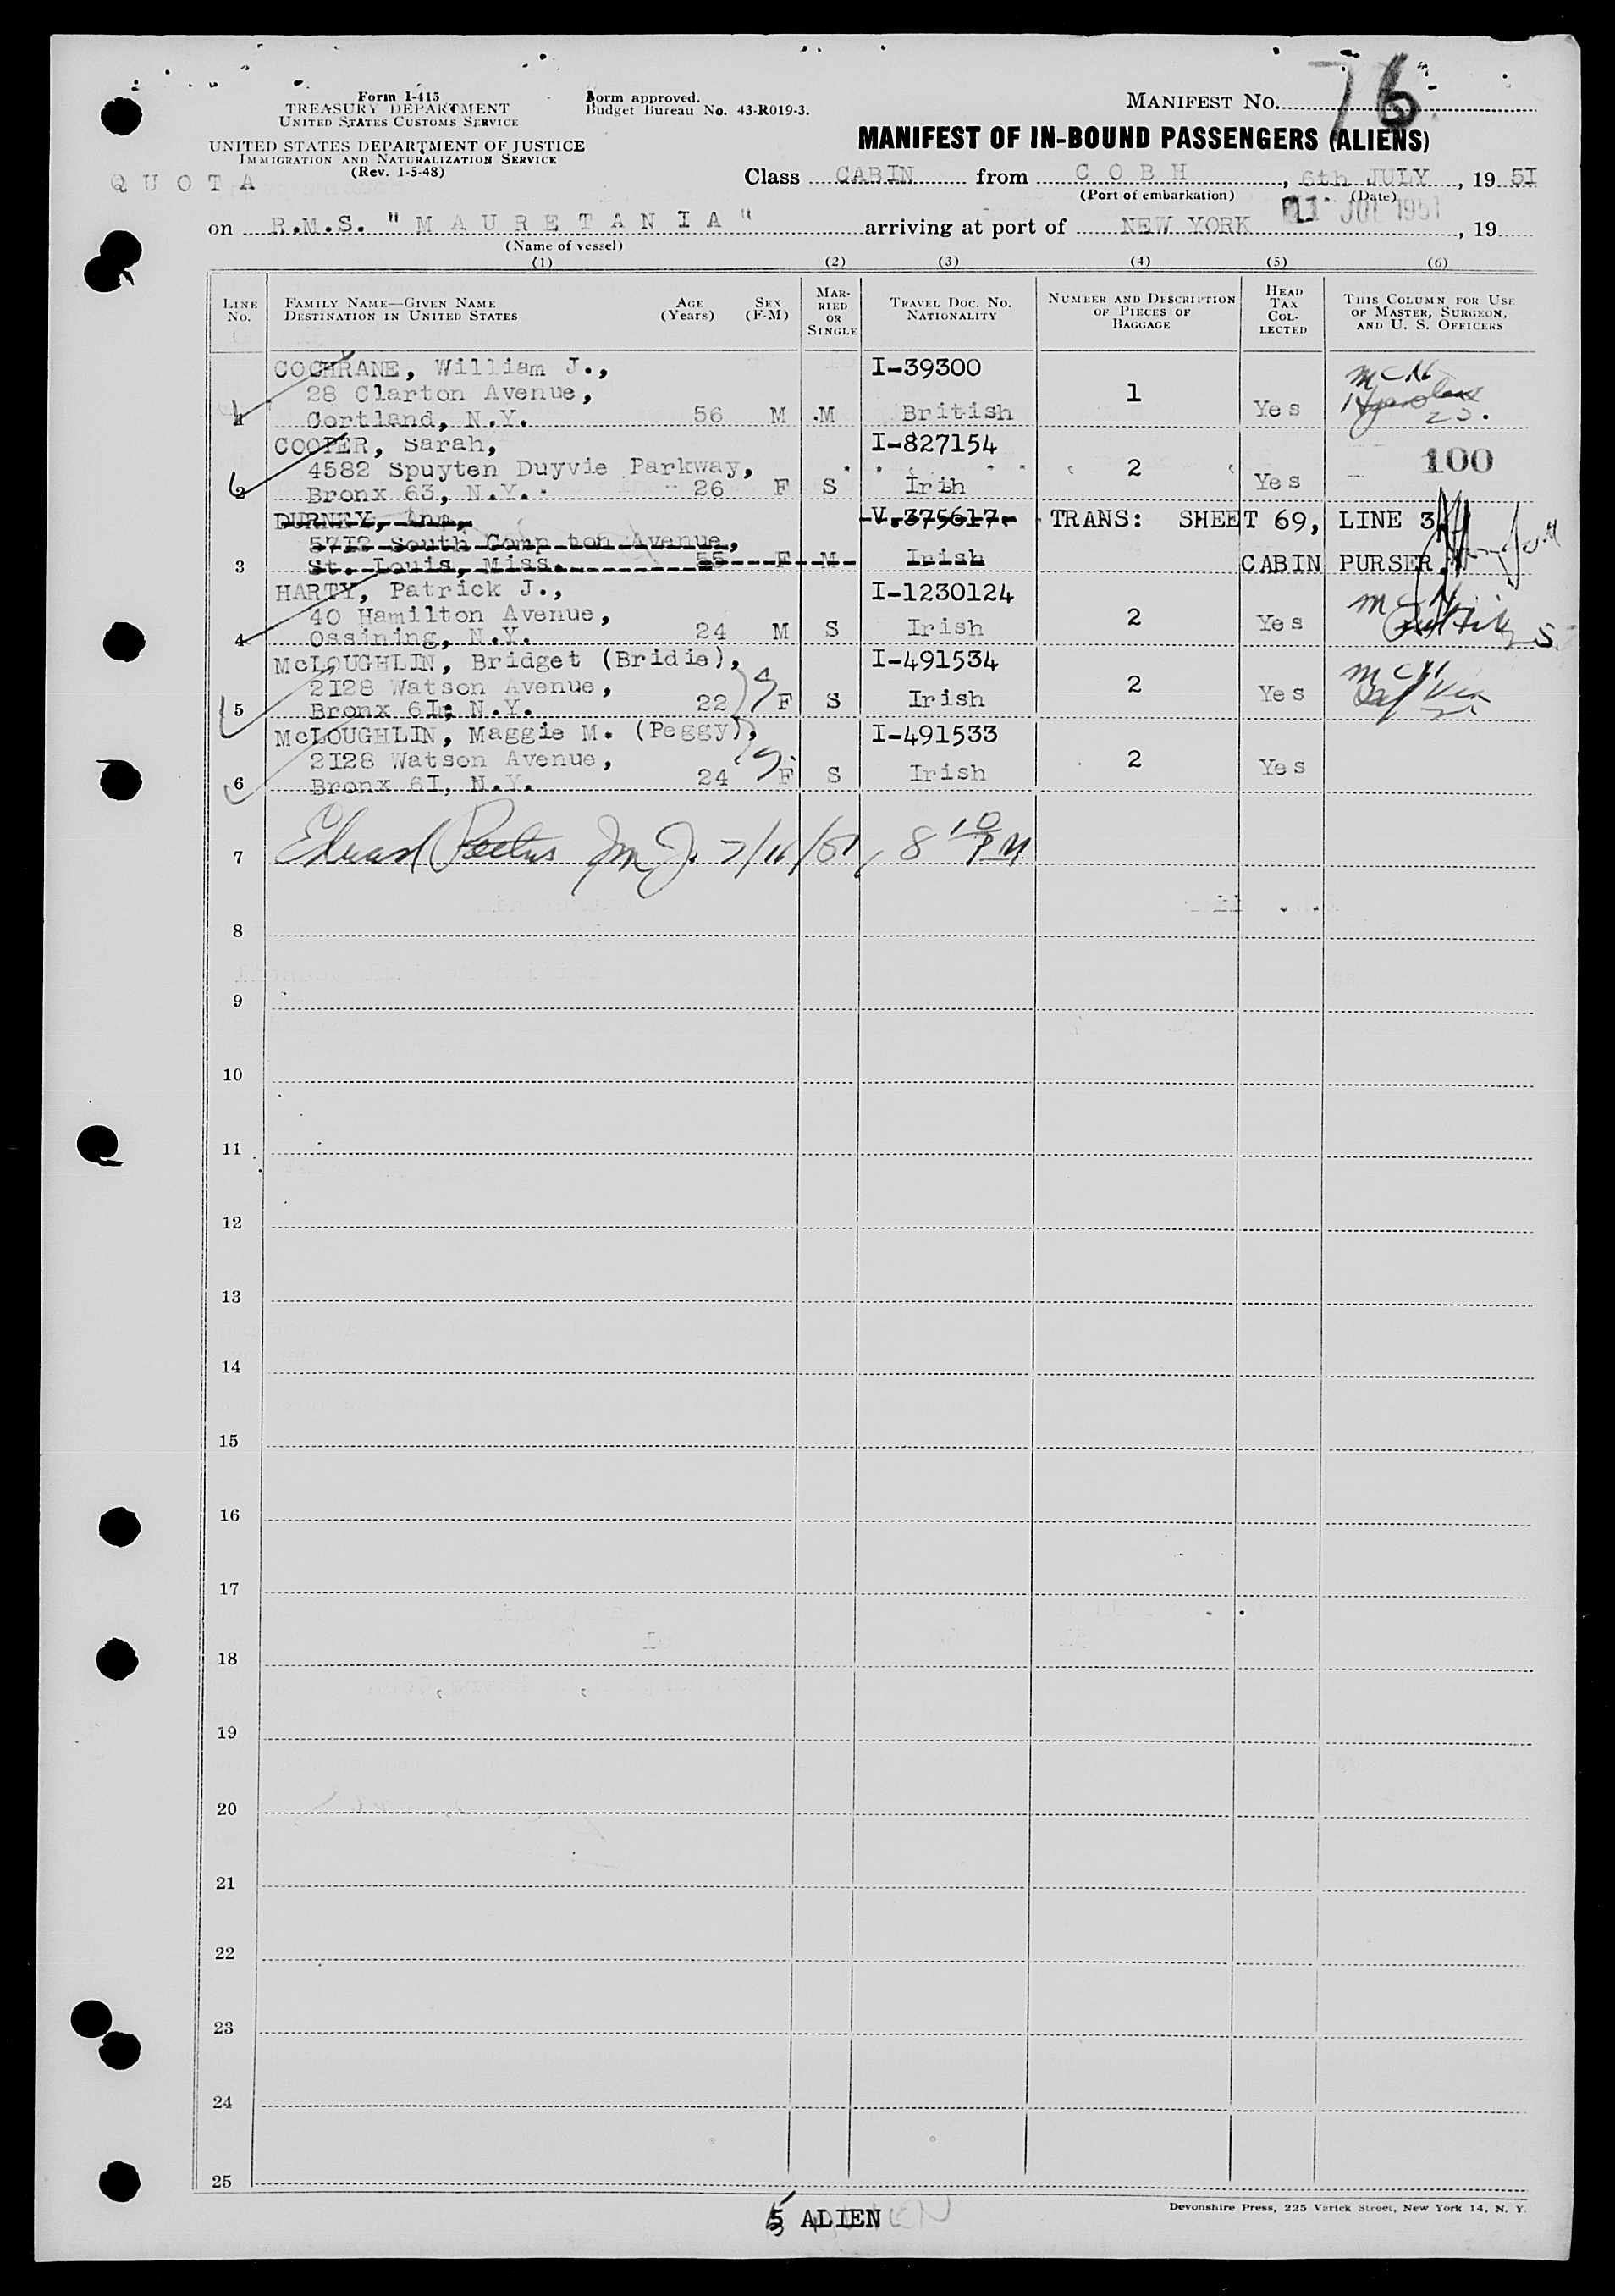 Form I-415
TREASURY DEPARTMENT
UNITED STATES CUSTOMS SERVICE
UNITED STATES DEPARTMENT OF JUSTICE
IMMIGRATION AND NATURALIZATION SERVICE
(Rev. 1-5-48)
Form approved.
Budget Bureau No. 43-R019-3.
MANIFEST No. 76
MANIFEST OF IN-BOUND PASSENGERS (ALIENS)
QUOTA
Class CABIN from COBH, 6th JULY, 19 5I
(Port of embarkation) (Date)
on R.M.S. "MAURETANIA" arriving at port of NEW YORK 11 JUL 1951, 19
(Name of vessel)
(1) (2) (3) (4) (5) (6)
LINE No.
FAMILY NAME—GIVEN NAME
DESTINATION IN UNITED STATES
AGE (Years)
SEX (F-M)
MARRIED OR SINGLE
TRAVEL DOC. NO. NATIONALITY
NUMBER AND DESCRIPTION OF PIECES OF BAGGAGE
HEAD TAX COLLECTED
THIS COLUMN FOR USE OF MASTER, SURGEON, AND U. S. OFFICERS
COCHRANE, William J., I-39300
28 Clarton Avenue, 1
1 Cortland, N.Y. 56 M M British Yes
COOPER, Sarah, I-827154 100
4582 Spuyten Duyvie Parkway, 2
2 Bronx 63, N.Y. 26 F S Irih Yes
DURNEY, Ann, V.375617. TRANS: SHEET 69, LINE 3
5712 South Comp ton Avenue,
3 St. Louis, Miss. 55 F M Irish CABIN PURSER.
HARTY, Patrick J., I-1230124
40 Hamilton Avenue, 2
4 Ossining, N.Y. 24 M S Irish Yes
McLOUGHLIN, Bridget (Bridie), I-491534
2I28 Watson Avenue, 2
5 Bronx 6I, N.Y. 22 F S Irish Yes
McLOUGHLIN, Maggie M. (Peggy), I-491533
2I28 Watson Avenue, 2
6 Bronx 6I, N.Y. 24 F S Irish Yes
7 8 10 PM
8
9
10
11
12
13
14
15
16
17
18
19
20
21
22
23
24
25
5 ALIEN
Devonshire Press, 225 Varick Street, New York 14, N. Y.